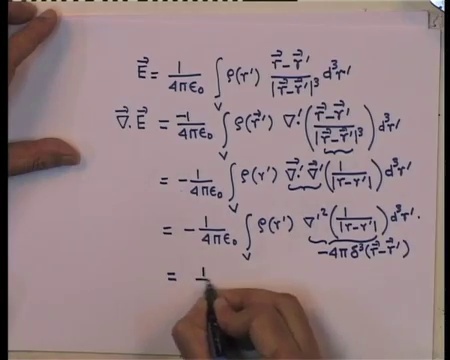 E⃗ = 1/4πε₀ ∫_V ρ(r') (r⃗ - r⃗')/|r⃗ - r⃗'|³ d³r'
∇⃗. E⃗ = -1/4πε₀ ∫_V ρ(r⃗') ∇'. ((r⃗ - r⃗')/|r⃗ - r⃗'|³) d³r'
= - 1/4πε₀ ∫_V ρ(r') ∇⃗'. ∇⃗' (1/|r - r'|) d³r'
= - 1/4πε₀ ∫_V ρ(r') ∇'² (1/|r - r'|) d³r'.
-4πδ³(r⃗ - r⃗')
= 1